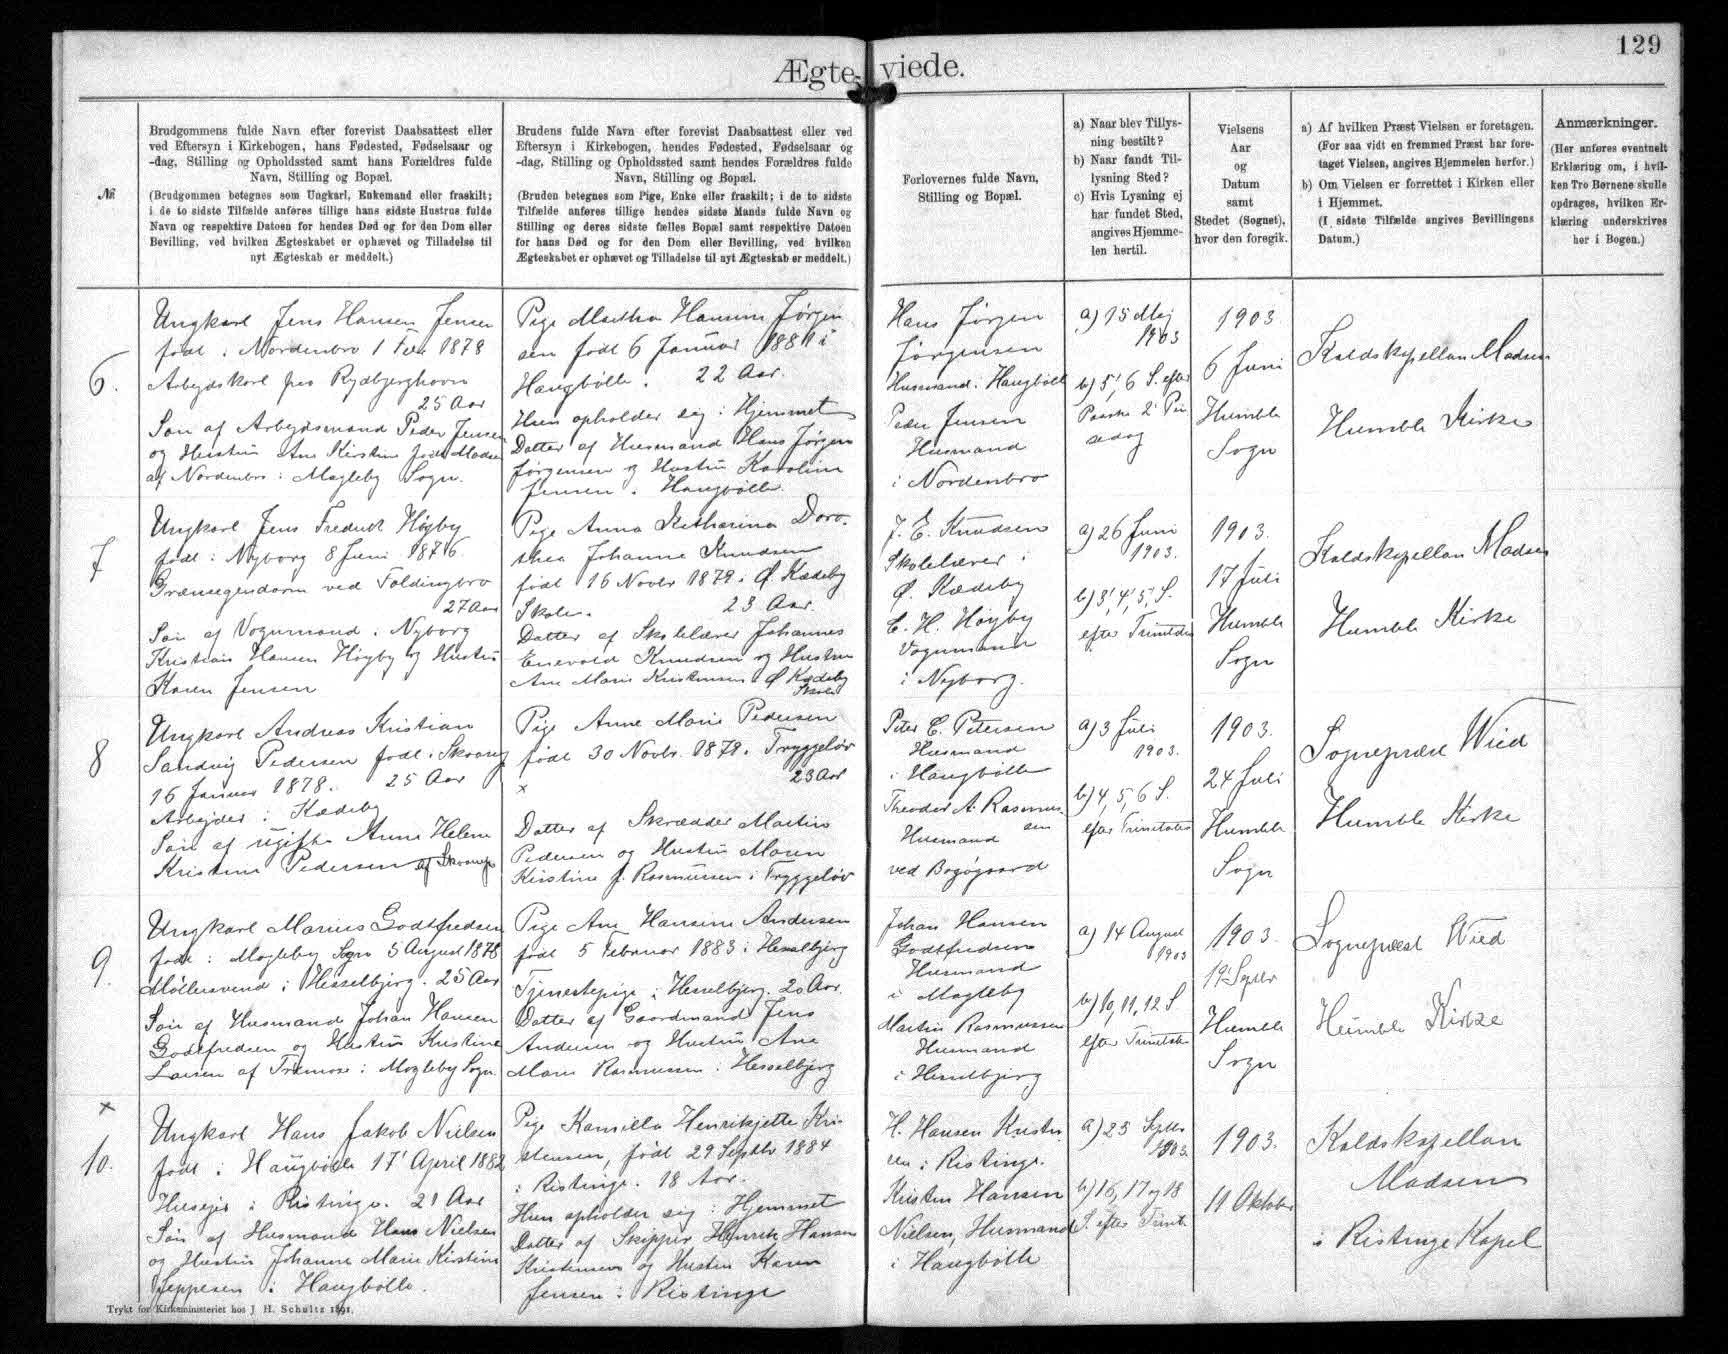 129
Ægteviede.
№
Brudgommens fulde Navn efter forevist Daabsattest eller
ved Eftersyn i Kirkebogen, hans Fødested, Fødselsaar og
-dag, Stilling og Opholdssted samt hans Forældres fulde
Navn, Stilling og Bopæl.
(Brudgommen betegnes som Ungkarl, Enkemand eller fraskilt;
i de to sidste Tilfælde anføres tillige hans sidste Hustrus fulde
Navn og respektive Datoen for hendes Død og for den Dom eller
Bevilling, ved hvilken Ægteskabet er ophævet og Tilladelse til
nyt Ægteskab er meddelt.)
Brudens fulde Navn efter forevist Daabsattest eller ved
Eftersyn i Kirkebogen, hendes Fødested, Fødselsaar og
-dag, Stilling og Opholdssted samt hendes Forældres fulde
Navn, Stilling og Bopæl.
(Bruden betegnes som Pige, Enke eller fraskilt; i de to sidste
Tilfælde anføres tillige hendes sidste Mands fulde Navn og
Stilling og deres sidste fælles Bopæl samt respektive Datoen
for hans Død og for den Dom eller Bevilling, ved hvilken
Ægteskabet er ophævet og Tilladelse til nyt Ægteskab er meddelt.)
Forlovernes fulde Navn,
Stilling og Bopæl.
a) Naar blev Tillys-
ning bestilt?
b) Naar fandt Til-
lysning Sted?
c) Hvis Lysning ej
har fundet Sted,
angives Hjemme-
len hertil.
Vielsens
Aar
og
Datum
samt
Stedet (Sognet),
hvor den foregik.
a) Af hvilken Præst Vielsen er foretagen.
(For saa vidt en fremmed Præst har fore-
taget Vielsen, angives Hjemmelen herfor.)
b) Om Vielsen er forrettet i Kirken eller
i Hjemmet.
(I sidste Tilfælde angives Bevillingens
Datum.)
Anmærkninger.
(Her anføres eventuelt
Erklæring om, i hvil-
ken Tro Børnene skulle
opdrages, hvilken Er-
klæring underskrives
her i Bogen.)
6.
Ungkarl Jens Hansen Jensen
født i Nordenbro 1 Febr 1878
Arbejdskarl paa Rydbjerghavn
25 Aar
Søn af Arbejdsmand Peder Jensen
og Hustru Ane Kirstine født Madsen
af Nordenbro i Magleby Sogn.
Pige Martha Hansine Jørgen
sen født 6 Januar 1881 i
Haugbølle. 22 Aar.
Hun opholder sig i Hjemmet
Datter af Husmand Hans Jørgen
Jørgensen og Hustru Karoline
Jensen i Haugbølle.
Hans Jørgen
Jørgensen
Husmand i Haugbølle
Peder Jensen
Husmand
i Nordenbro
a) 15 Maj
1903
b) 5, 6 S. efter
Paaske 2' Pin
sedag
1903.
6 Juni
Humble
Sogn
Kaldskapellan Madsen
Humble Kirke
7
Ungkarl Jens Frederik Højby
født i Nyborg 8 Juni 1876.
Grænsegendarm ved Foldingbro
27 Aar
Søn af Vognmand i Nyborg
Kristian Hansen Højby og Hustru
Karen Jensen
Pige Anna Katharina Doro-
thea Johanne Knudsen
født 16 Novbr 1879 i Ø. Kædeby
Skole. 23 Aar.
Datter af Skolelærer Johannes
Enevold Knudsen og Hustru
Ane Marie Kristensen Ø Kædeby
Skole
J. E. Knudsen
Skolelærer i
Ø. Kædeby
C. H. Højby
Vognmand
i Nyborg.
a) 26 Juni
1903.
b) 3', 4', 5', S.
efter Trinitatis
1903.
17 Juli
Humble
Sogn
Kaldskapellan Madsen
Humble Kirke
8
Ungkarl Andreas Kristian
Sandvig Pedersen født i Skaarup
16 Januar 1878. 25 Aar
Arbejder i Kædeby
Søn af ugifte Anne Helene
Kristine Pedersen af Skaarup
Pige Anne Marie Pedersen
født 30 Novbr. 1879 i Tryggeløv
23 Aar
x
Datter af Skrædder Martin
Pedersen og Hustru Maren
Kirstine f. Rasmussen i Tryggeløv
Peter C. Petersen
Husmand
i Haugbølle
Theodor A. Rasmus-
sen
Husmand
ved Bogøgaard
a) 3 Juli
1903.
b) 4, 5, 6 S.
efter Trinitatis
1903.
24 Juli
Humble
Sogn
Sognepræst Wied
Humble Kirke
9.
Ungkarl Marius Godtfredsen
født i Magleby Sogn 5 August 1878
Møllersvend i Hesselbjerg. 25 Aar
Søn af Husmand Johan Hansen
Godtfredsen og Hustru Kirstine
Larsen af Tremose i Magleby Sogn.
Pige Ane Hansine Andersen
født 5 Februar 1883 i Hesselbjerg
Tjenestepige i Hesselbjerg. 20 Aar.
Datter af Gaardmand Jens
Andersen og Hustru Ane
Marie Rasmussen i Hesselbjerg
Johan Hansen
Godtfredsen
Husmand
i Magleby
Martin Rasmussen
Husmand
i Hesselbjerg
a) 14 August
1903
b) 10, 11, 12 S
efter Trinitatis
1903.
19' Septbr
Humble
Sogn
Sognepræst Wied
Humble Kirke
x
10.
Ungkarl Hans Jakob Nielsen
født i Haugbølle 17' April 1882
Husejer i Ristinge. 21 Aar
Søn af Husmand Hans Nielsen
og Hustru Johanne Marie Kirstine
Jeppesen i Haugbølle.
Pige Kamilla Henrikjette Kri-
stensen, født 29 Septbr 1884
i Ristinge. 18 Aar.
Hun opholder sig i Hjemmet
Datter af Skipper Henrik Hansen
Kristensen og Hustru Karen
Jensen i Ristinge
H. Hansen Kristen
sen i Ristinge.
Kristen Hansen
Nielsen, Husmand
i Haugbølle
a) 23 Septbr
1903.
b) 16, 17 og 18
S. efter Trinit.
1903.
11 Oktober
Kaldskapellan
Madsen
i Ristinge Kapel
Trykt for Kirkeministeriet hos J. H. Schultz 1891.